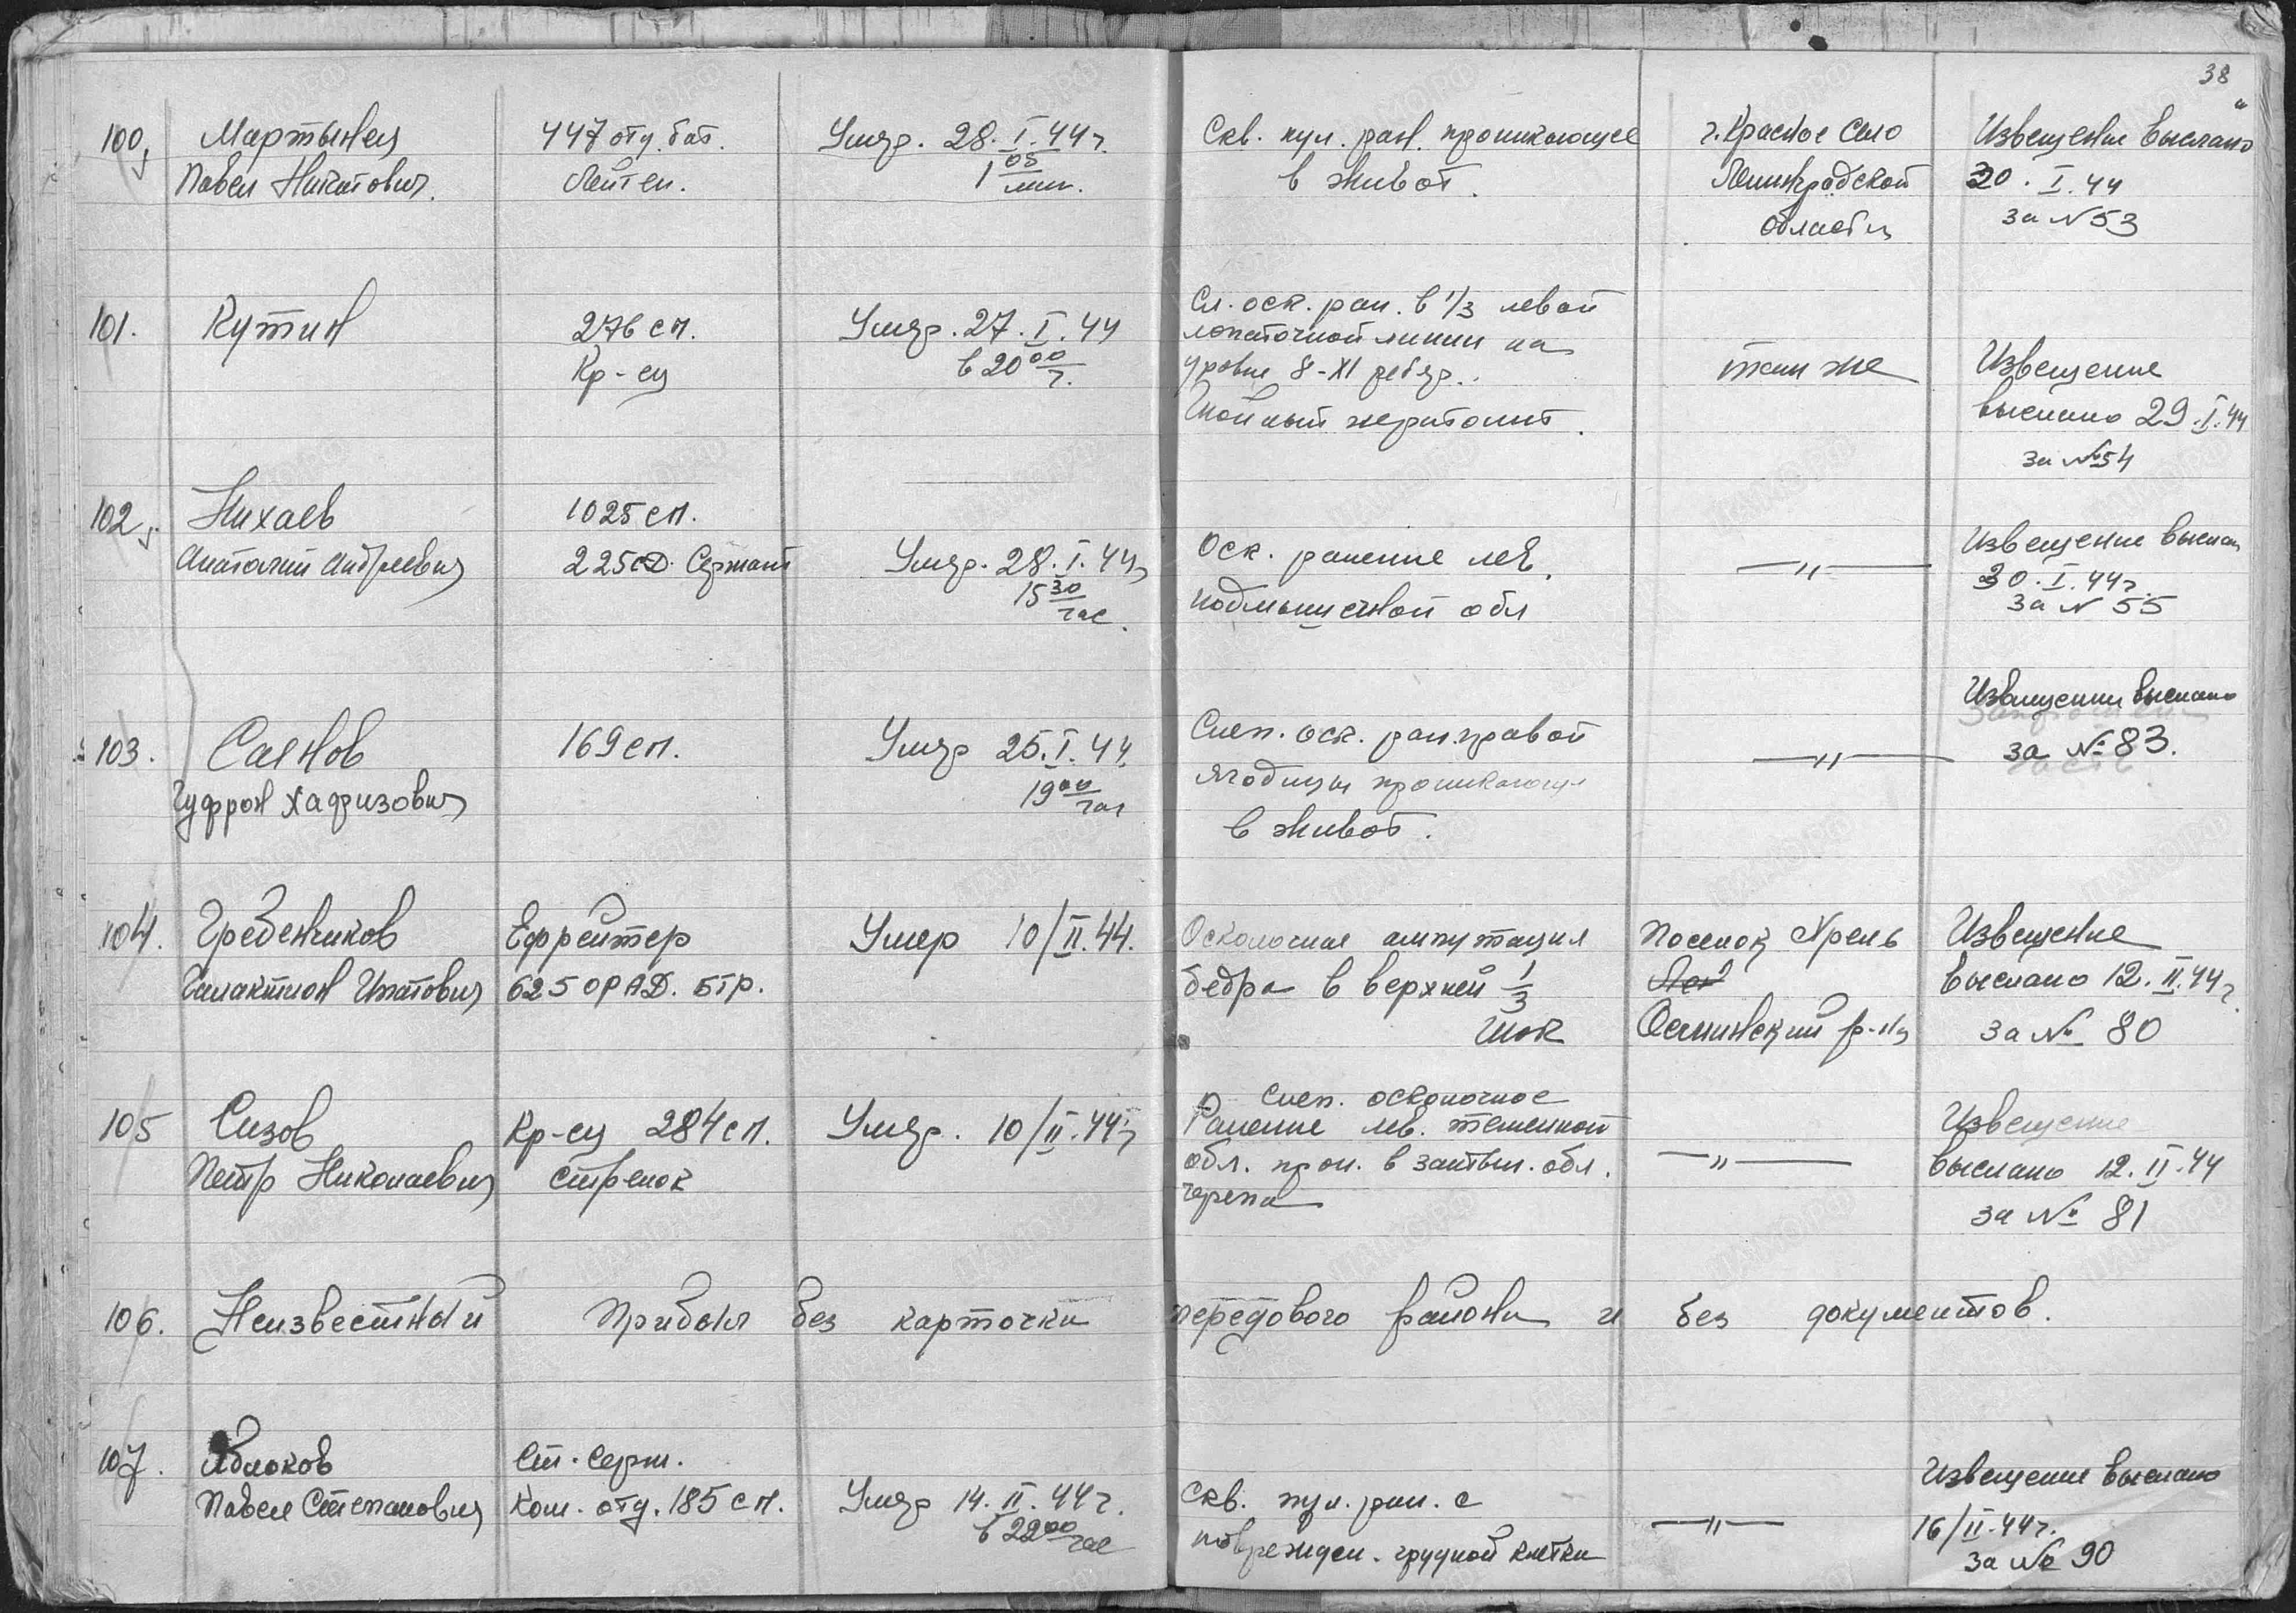 38
100, Мартынец 447 отд. бат. Умер. 28.I.44г. Скв. пул. ран. проникающее г. Красное Село Извещение выслано
Павел Игнатович. Лейтен. 1 05 мин. в живот. Ленинградской 30. I. 44
области за № 53
101. Кутин 276 сп. Умер. 27.I.44 Сл. оск. ран. в 1/3 левой
Кр-ец в 20 00 ч. лопаточной линии на
уровне 8-XI ребер. там же Извещение
Гнойный перитонит. выслано 29.I.44
за №54
102. Нихаев 1025 сп.
Анатолий Андреевич 225 сД. Сержант Умер. 28.I.44г Оск. ранение лев. —"— Извещение выслан
15 30 час. подмышечной обл 30.I.44г.
за № 55
103. Саенов 169 сп. Умер 25.I.44. Слеп. оск. ран. правой —"— Извещении выслано
Гуфрон Хафизович 19 00 час ягодицы проникающ за № 83.
в живот.
104. Гребенчиков Ефрейтер Умер 10/II.44. Осколочная ампутация Поселок Хрель Извещение
Галактион Ипатович 625 ОРАД. БТР. бедра в верхней 1/3 Лен выслано 12.II.44г.
шок Осьминский р-н за № 80
105 Сизов Кр-ец 284 сп. Умер. 10/II.44г Слеп. осколочное Извещение
Петр Николаевич стрелок Ранение лев. теменной —"— выслано 12.II.44
обл. прон. в затыл. обл. за № 81
черепа
106. Неизвестный Прибыл без карточки передового района и без документов.
107. Яблоков Ст. серж. Извещение выслано
Павел Степанович Ком. отд. 185 сп. Умер 14.II.44г. Скв. пул. ран. с —"— 16/II-44г.
в 22 00 час поврежден. грудной клетки за № 90